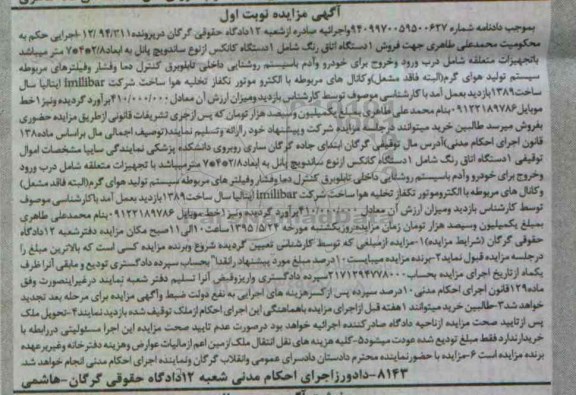 آگهی مزایده نوبت اول
بموجب دادنامه شماره ۹۴۰۹۹۷۰۰۵۹۵۰۰۶۲۷ واجرائیه صادره ازشعبه ۱۲دادگاه حقوقی گرگان درپرونده ۱۲/۹۴/۳۱۱اجرایی حکم به
محکومیت محمدعلی طاهری جهت فروش ۱دستگاه اتاق رنگ شامل ۱دستگاه کانکس ازنوع ساندویچ پانل به ابعاد ۷۵۴۵۲/۸ متر میباشد
باتجهیزات متعلقه شامل درب ورود وخروج برای خودرو وآدم باسیستم روشنایی داخلی تابلوبرق کنترل دما وفشار وفیلترهای مربوطه
سیستم تولید هوای گرم(البته فاقد مشعل)وکانال های مربوطه با الکترو موتور تکفاز تخلیه هوا ساخت شرکت imilibar ایتالیا سال
ساخت۱۳۸۹بازدید بعمل آمد با کارشناسی موصوف توسط کارشناس بازدید ومیزان ارزش آن معادل ۴۱۰/۰۰۰/۰۰۰برآورد گردیده ونیز ۱خط
موبایل ۰۹۱۲۲۱۸۹۷۸۶ بنام محمد علی طاهری بمبلغ یکمیلیون وسیصد هزار تومان که پس ازجری تشریفات قانونی ازطریق مزایده حضوری
بفروش میرسد طالبین خرید میتوانند درجلسه مزایده شرکت وپیشنهاد خود را ارائه وتسلیم نمایند(توصیف اجمالی مال براساس ماده۱۳۸
قانون اجرای احکام مدنی)آدرس مال توقیفی گرگان ابتدای جاده گرگان ساری روبروی دانشکده پزشکی نمایندگی سایپا مشخصات اموال
توقیفی ۱دستگاه اتاق رنگ شامل ۱دستگاه کانکس ازنوع ساندویچ پانل به ابعاد ۷۵۴۵۲/۸مترمیباشد با تجهیزات متعلقه شامل درب ورود
وخروج برای خودرو وآدم باسیستم روشنایی داخلی تابلوبرق کنترل دماوفشار وفیلترهای مربوطه سیستم تولید هوای گرم(البته فاقد مشعل)
وکانال های مربوطه باالکتروموتور تکفاز تخلیه هوا ساخت شرکت imilibar ایتالیا سال ساخت ۱۳۸۹بازدید بعمل آمد باکارشناسی موصوف
توسط کارشناس بازدید ومیزان ارزش آن معادل برآورد گردیده ونیز ۱خط موبایل ۰۹۱۲۲۱۸۹۷۸۶ بنام محمدعلی طاهری
بمبلغ یکمیلیون وسیصد هزار تومان زمان مزایده روزیکشنبه مورخه ۱۳۹۵/۵/۲۴ ساعت ۱۰الی ۱۱صبح مکان مزایده دفترشعبه ۱۲دادگاه
حقوقی گرگان (شرایط مزایده)۱-مزایده ازمبلغی که توسط کارشناس تعیین گردیده شروع وبرنده مزایده کسی است که بالاترین مبلغ را
درجلسه مزایده قبول نماید۲-برنده مزایده میبایست ۱۰درصد مبلغ مورد پیشنهاد رانقدا" بحساب سپرده دادگستری تودیع و مابقی آنرا ظرف
یکماه ازتاریخ اجرای مزایده بحساب ۲۱۷۱۲۹۴۷۷۸۰۰۰سپرده دادگستری واریزوقبض آنرا تسلیم دفتر شعبه نمایند درغیراینصورت وفق
ماده۱۲۹قانون اجرای احکام مدنی ۱۰درصد سپرده پس ازکسرهزینه های اجرایی به نفع دولت ضبط وآگهی مزایده برای مرحله بعد تجدید
خواهد شد۳-طالبین خرید میتوانند ۱هفته قبل ازاجرای مزایده باهماهنگی این اجرای احکام ازملک توقیف شده بازدید نمایند۴-تحویل ملک
پس ازتایید صحت مزایده ازناحیه دادگاه صادرکننده اجرائیه خواهد بود درصورت عدم تایید صحت مزایده این اجرا مسئولیتی دررابطه با
خریدارندارد فقط مبلغ تودیع شده عودت میشود۵-کلیه هزینه های نقل انتقال ملک ازمین اعم ازمالیات عوارض وهزینه دفترخانه وغیربرعهده
برنده مزایده است ۶-مزایده با حضورنماینده محترم دادستان دادسرای عمومی وانقلاب گرگان ونماینده اجرای احکام مدنی انجام خواهد شد.
۸۱۴۳-دادورزاجرای احکام مدنی شعبه ۱۲دادگاه حقوقی گرگان-هاشمی